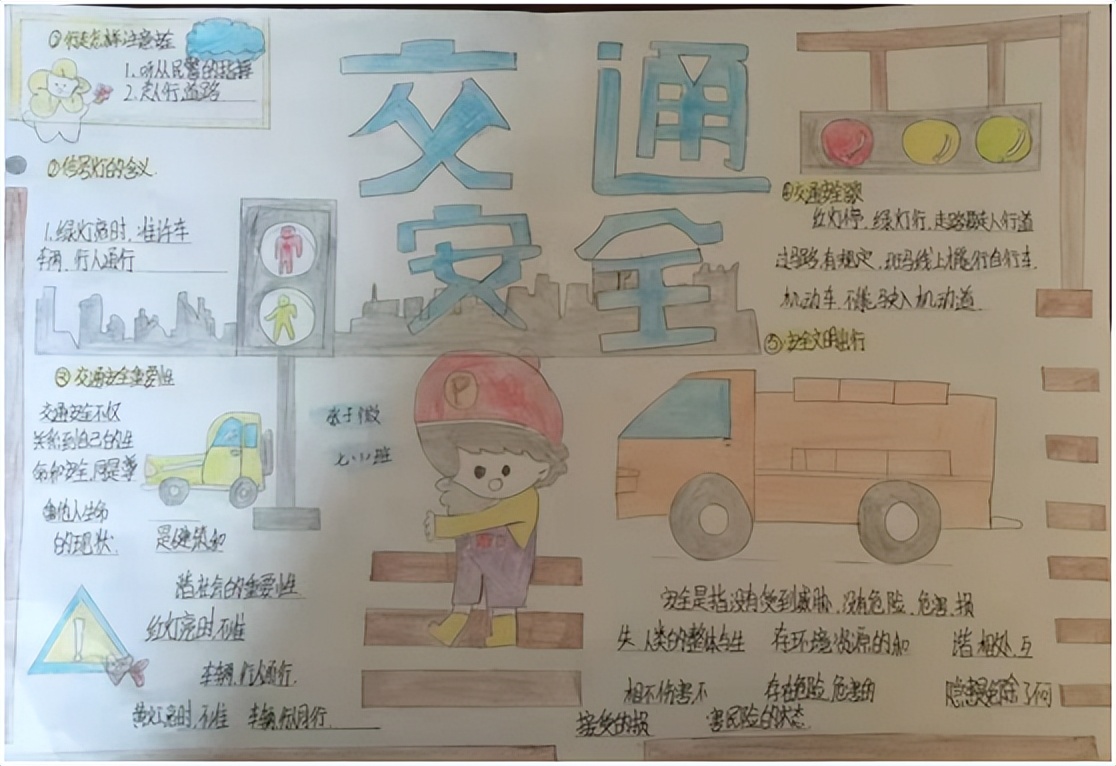 交通
安全
①行走怎样注意安全
1.听从民警的指挥
2.走人行道路
②信号灯的含义.
1.绿灯亮时,准许车
车辆,行人通行
③交通安全重要性
交通安全不仅
关系到自己的生
命和安全,同是尊
重他人生命
的现状.
是构建筑和
谐社会的重要性
红灯亮时,不准
车辆,行人通行.
黄灯亮时,不准 车辆,行人通行.
七、(1)班
P
④交通安全歌
红灯停,绿灯行,走路要走人行道
过马路有规定,斑马线上
行自行车.
机动车不能驶入机动道
⑤安全文明出行
安全是指没有受到威胁,没有危险、危害、损
失.人类的整体与生 存在环境资源的和 谐相处,互
相不伤害,不 存在危险、危害的 隐患
免除了不可
接受的损 害风险的状态.